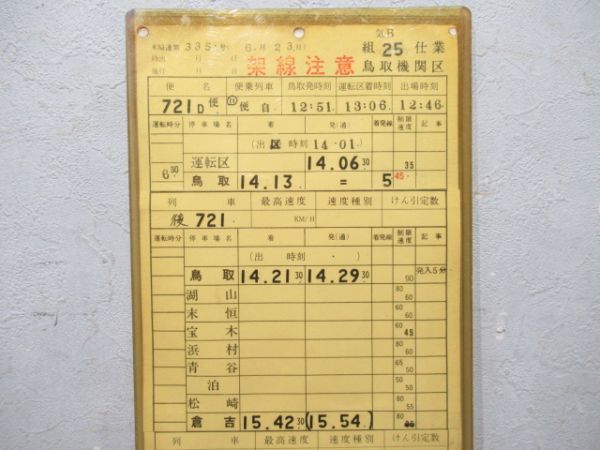 気B
335号 6月23日
組 25 仕業
架線注意 鳥取機関区
便 名 便乗列車 鳥取発時刻 運転区着時刻 出場時刻
721D便 ⑪便自 12:51 13:06 12:46
運転時分 停車場名 着 発(通) 着発線 制限速度 記事
(出区時刻 14.01)
運転区 14.06 30 35
6 30 鳥取 14.13 = 5 45
列 車 最高速度 速度種別 けん引定数
後 721 KM/H
運転時分 停車場名 着 発(通) 着発線 制限速度 記事
(出 時刻 ・ )
鳥取 14.21 30 14.29 30 90 発入5分
湖山 80 60
末恒 60 60
宝木 60 45
浜村 80 60
青谷 65 50
泊 80 50
松崎 50 55
倉吉 15.42 30 (15.54) 80
列 車 最高速度 速度種別 けん引定数